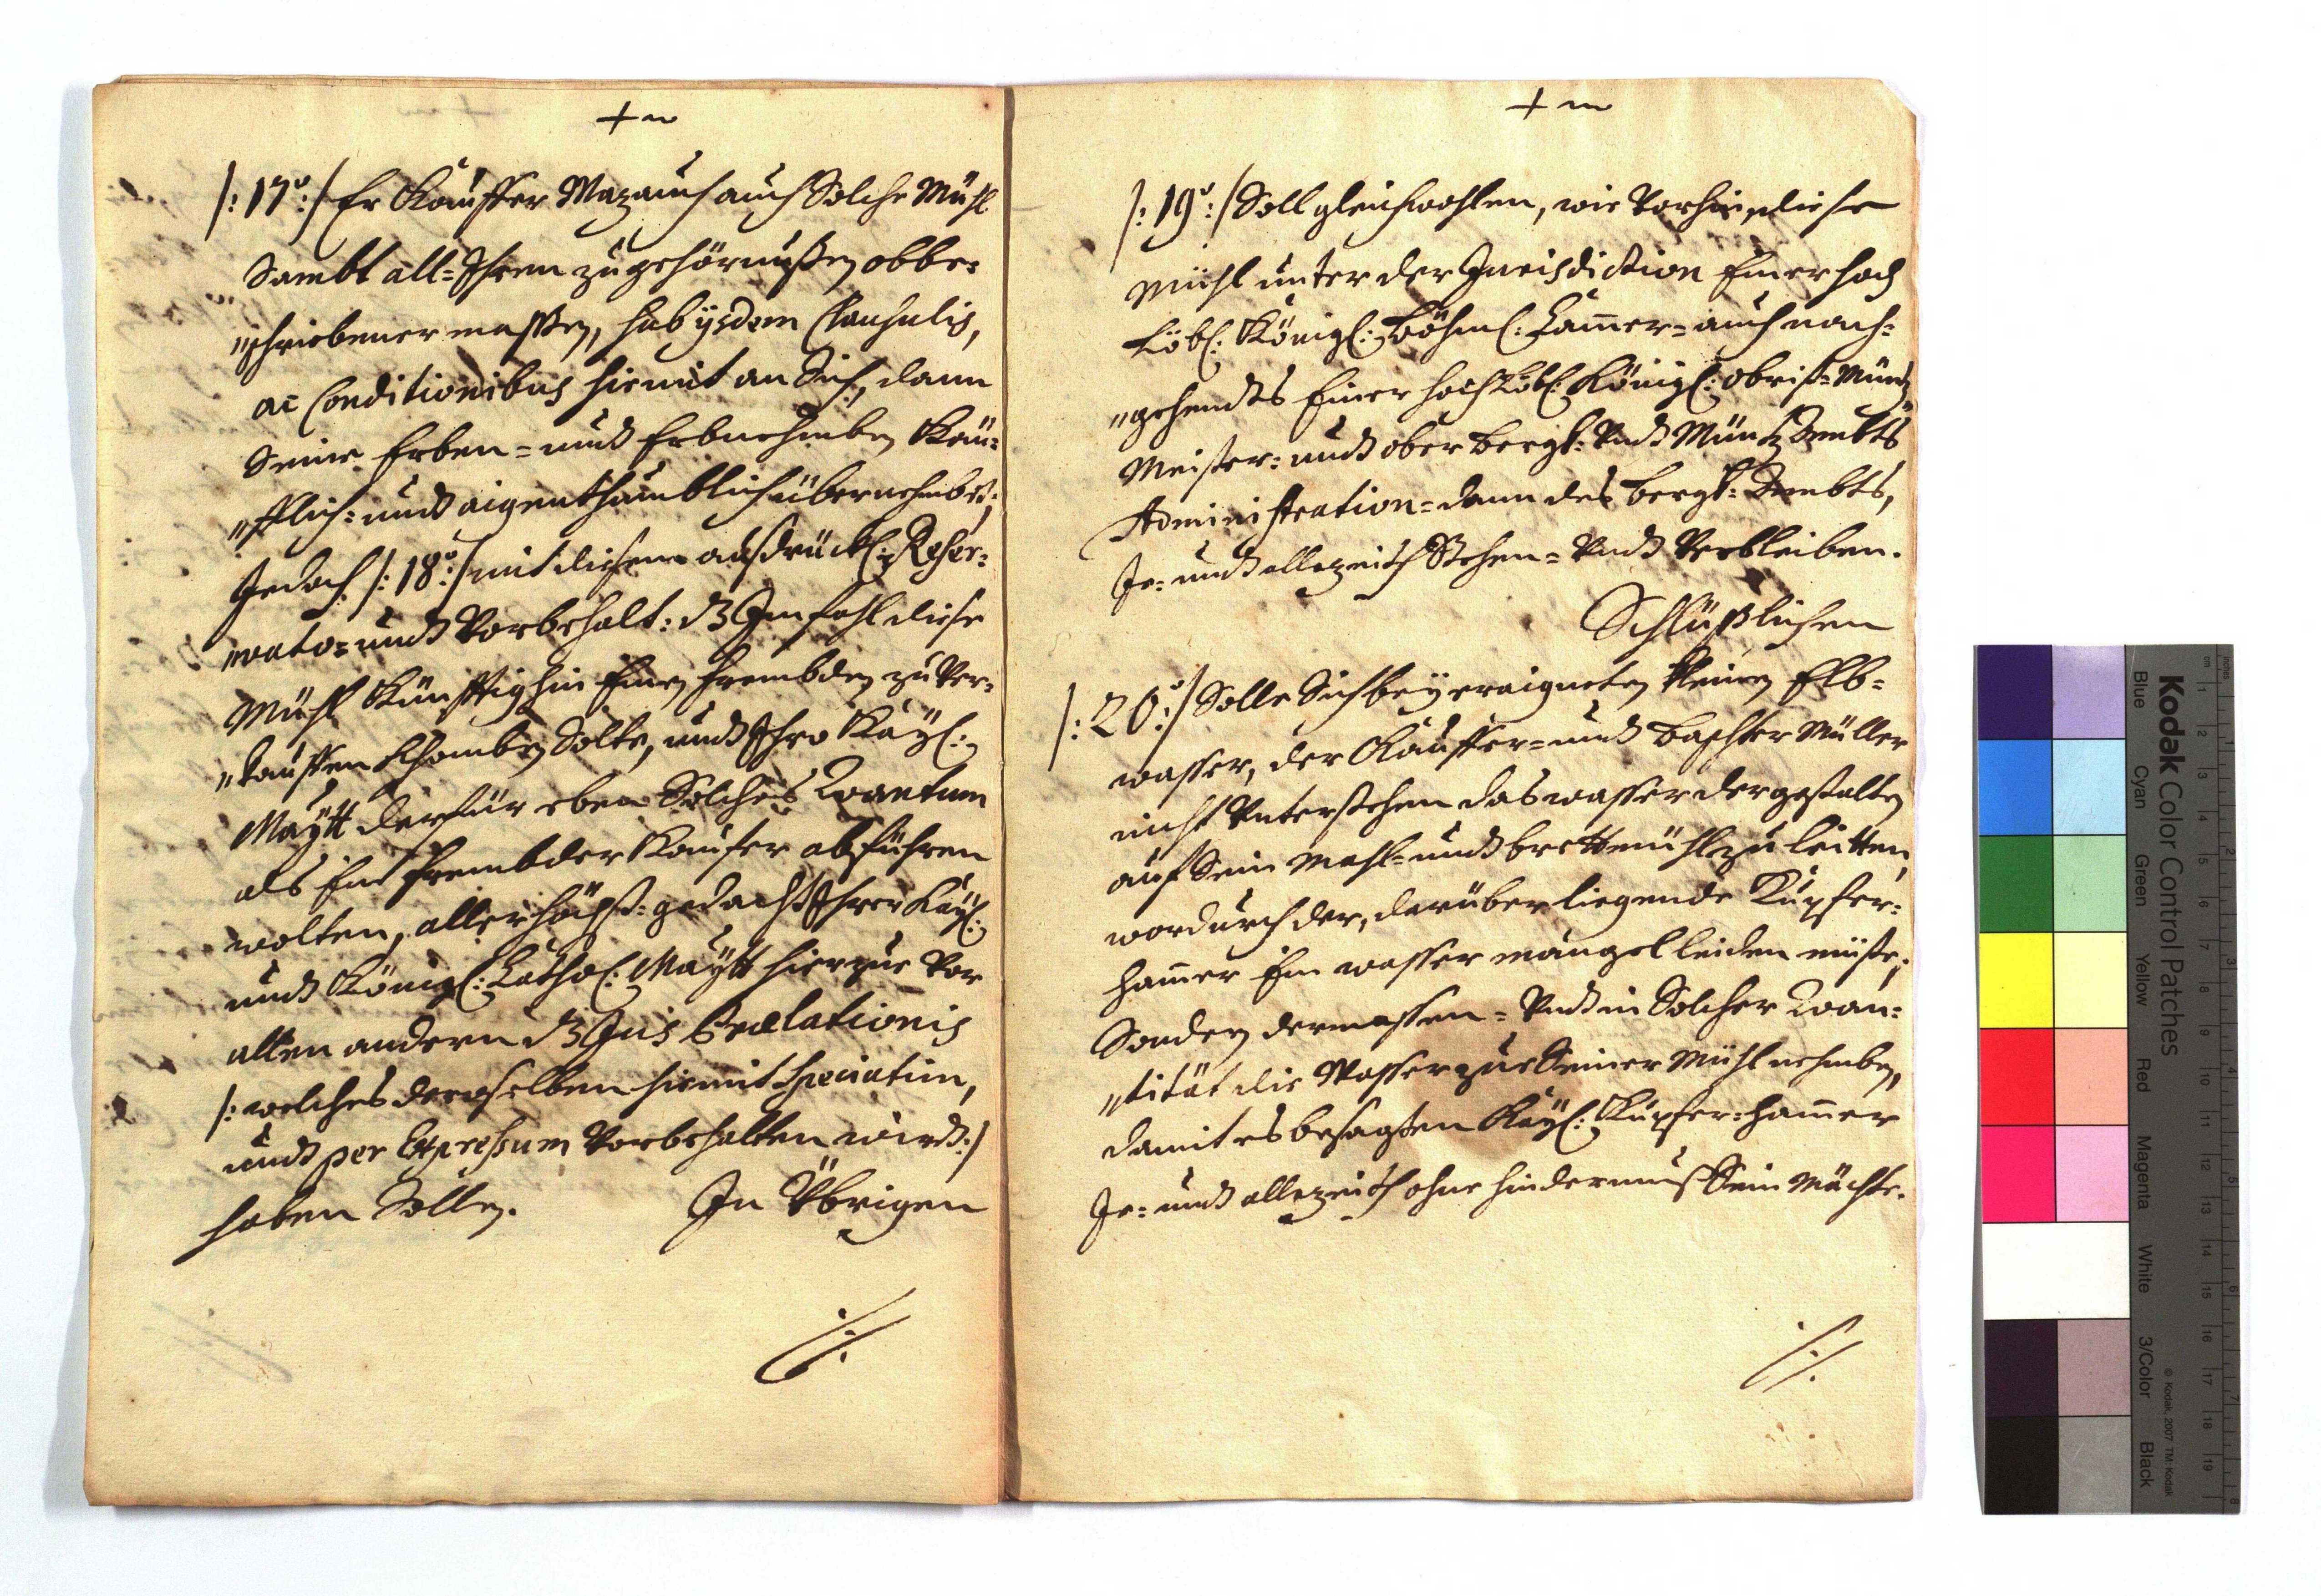 /:17º:/ Er Kauffer Mazauch auch Solche Mühl
Sambt all=Ihren zugehörnußen obbe=
„schriebener massen, sub ysdem Clausulis,
ac Conditionibus hiemit an Sich, dann
Seine Erben= undt Erbnehmben Käu=
„fflich= undt aigenthumblich übernehmbet;
Jedoch /:18º:/ mit diesem ausdrückl: Reser=
„vato= undt Vorbehalt: dz Im fahl diese
Mühl Künfftighin Einen frembden zu Ver=
„kauffen khomben Solte, undt Ihro Kayl:
Maytt dafür eben Solches Quantum
als Ein frembder Kaufer abführen
wolten, allerhöchst=gedacht Ihrer Kayl:
undt Königl: Cathol: Maytt hierzue Vor
allen andern dz Jus Prælationis
/:welches deroselben hiemit speciatim,
undt per Expressum Vorbehalten wirdt:/
haben Sollen. In Übrigen
/:19º:/ Soll gleichwohlen, wie Vorhin, diese
Mühl unter der Jurisdiction Einer hoch
Löbl: Königl: Böhml: Cammer= auch nach=
„gehendts Einer hochLöbl: Königl: obrist=Müntz
Meister= undt ober berg= Vndt MüntzAmbts
Administration= dann des berg=Ambts,
Je= undt allezeith Stehen= Vndt Verbleiben.
Schlüßlichen
/:20º:/ Solle Sich bey eraigneten kleinen Elb=
wasser, der Kauffer= undt Müller
nicht Unterstehen das wasser dergestalten
auf Sein Mahl= undt brettmühl zu leitten,
wordurch der, darüber liegende Kupfer=
hammer Ein wasser mangel leiden müste;
Sondern dermassen= Vndt in Solcher Quan=
„tität die Wasser zue Seiner Mühl nehmben,
damit es besagten Kayl: Kupfer=hammer
Je= undt allezeith ohne hindernuß Sein Möchte.